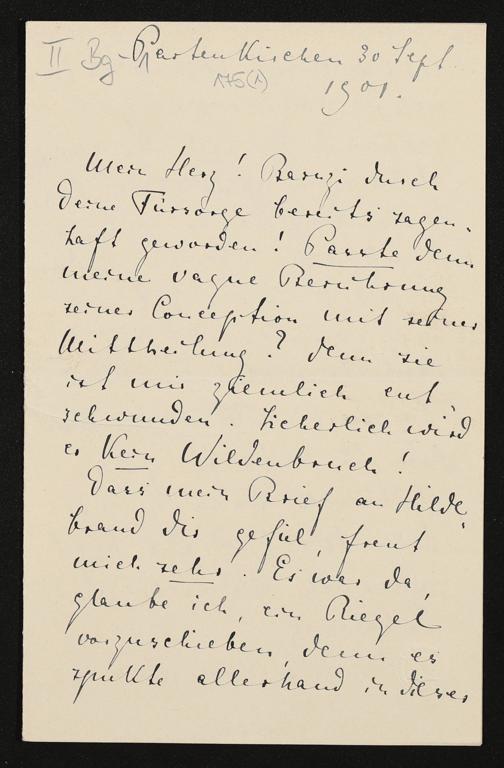 II Bg - Partenkirchen 30 Sept.
175(1) 1901.
Mein Herz! Barnzi durch
deine Fürsorge bereits sagen-
haft geworden! Passte denn
meine vague Berührung
seiner Conception mit seiner
Mittheilung? denn sie
ist mir ziemlich ent-
schwunden. Sicherlich wird
es kein Wildenbruch!
Dass mein Brief an Hilde-
brand dir gefiel, freut
mich sehr. Es war da,
glaube ich, ein Riegel
vorzuschieben, denn es
spukte allerhand in dieser